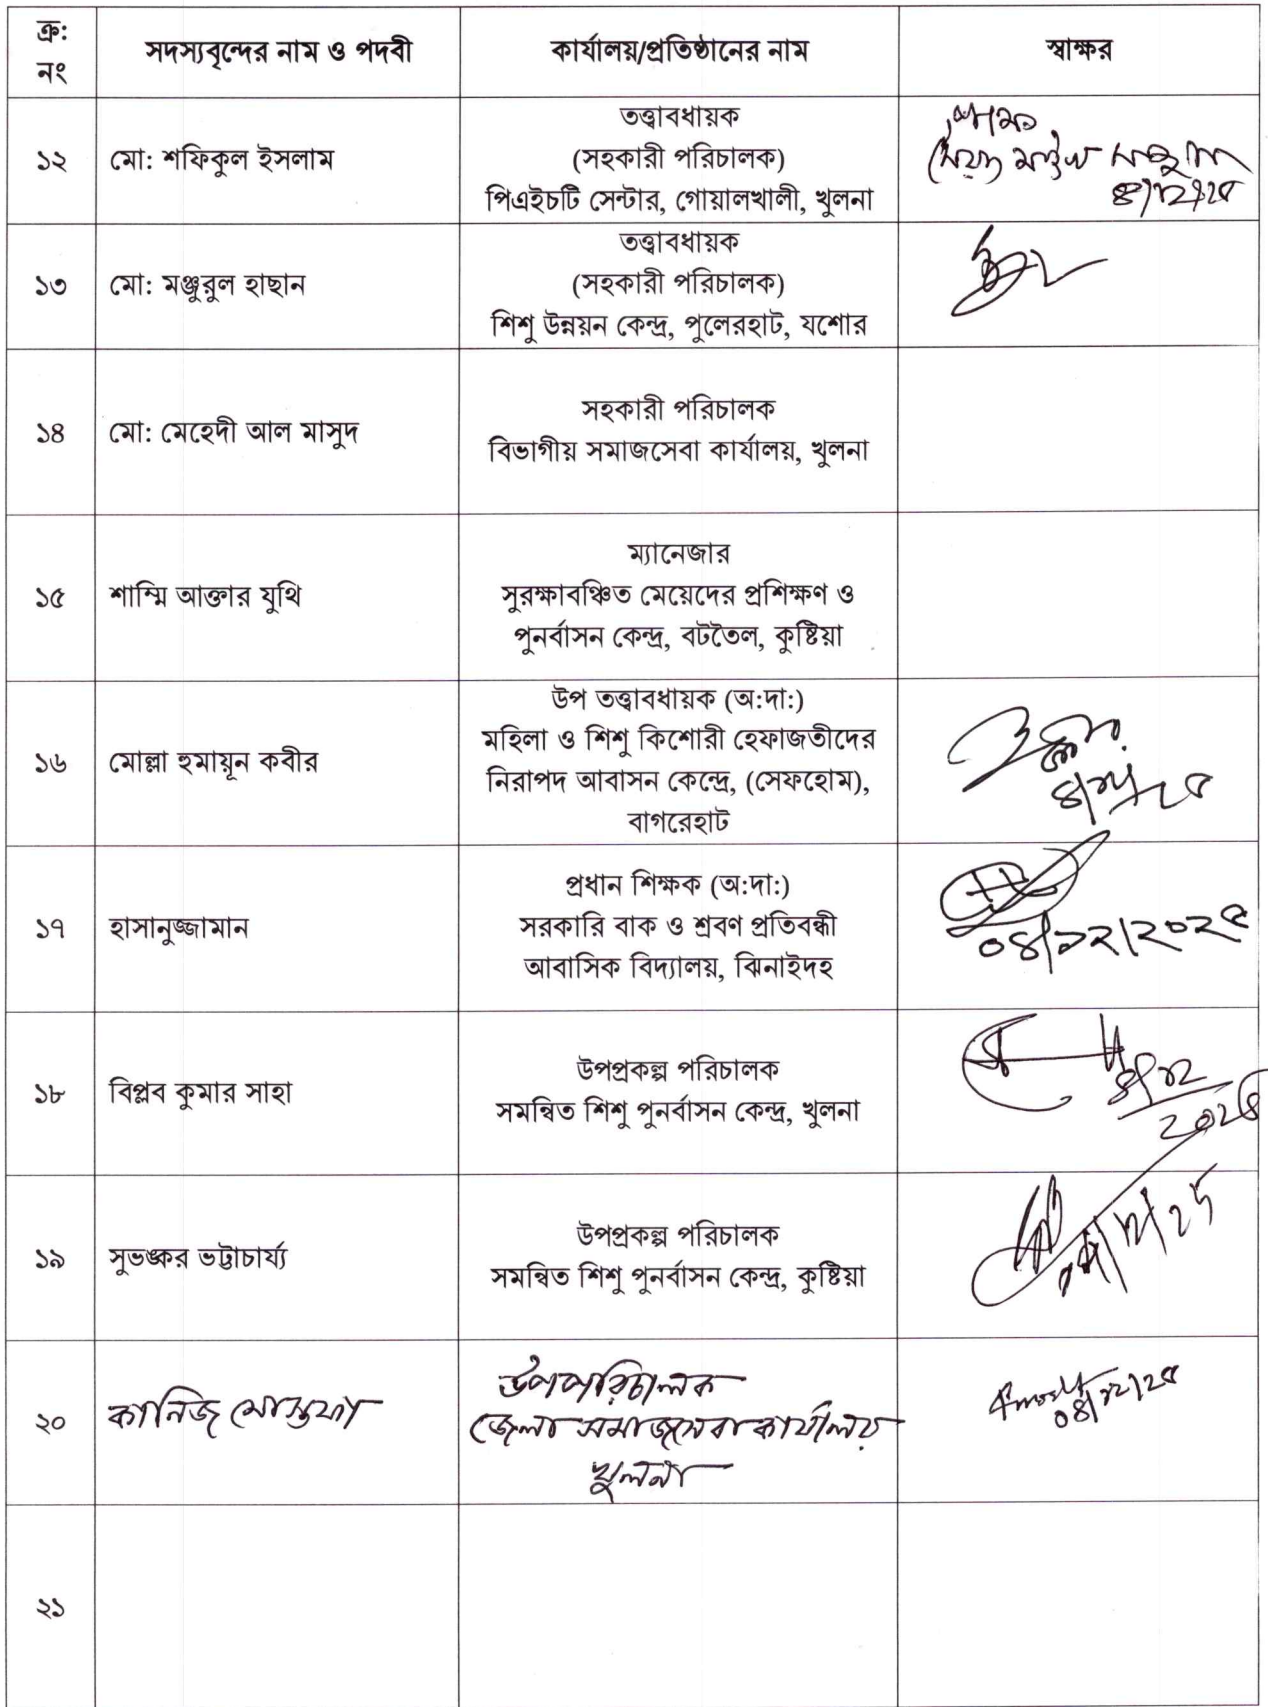 ক্র:
নং
সদস্যবৃন্দের নাম ও পদবী
কার্যালয়/প্রতিষ্ঠানের নাম
স্বাক্ষর
১২
মো: শফিকুল ইসলাম
তত্ত্বাবধায়ক
(সহকারী পরিচালক)
পিএইচটি সেন্টার, গোয়ালখালী, খুলনা
১৩
মো: মঞ্জুরুল হাছান
তত্ত্বাবধায়ক
(সহকারী পরিচালক)
শিশু উন্নয়ন কেন্দ্র, পুলেরহাট, যশোর
১৪
মো: মেহেদী আল মাসুদ
সহকারী পরিচালক
বিভাগীয় সমাজসেবা কার্যালয়, খুলনা
১৫
শাম্মি আক্তার যুথি
ম্যানেজার
সুরক্ষাবঞ্চিত মেয়েদের প্রশিক্ষণ ও
পুনর্বাসন কেন্দ্র, বটতৈল, কুষ্টিয়া
১৬
মোল্লা হুমায়ূন কবীর
উপ তত্ত্বাবধায়ক (অ:দা:)
মহিলা ও শিশু কিশোরী হেফাজতীদের
নিরাপদ আবাসন কেন্দ্রে, (সেফহোম),
বাগরেহাট
১৭
হাসানুজ্জামান
প্রধান শিক্ষক (অ:দা:)
সরকারি বাক ও শ্রবণ প্রতিবন্ধী
আবাসিক বিদ্যালয়, ঝিনাইদহ
০৪/১২/২০২৫
১৮
বিপ্লব কুমার সাহা
উপপ্রকল্প পরিচালক
সমন্বিত শিশু পুনর্বাসন কেন্দ্র, খুলনা
৪/১২
২০২৫
১৯
সুভঙ্কর ভট্টাচার্য্য
উপপ্রকল্প পরিচালক
সমন্বিত শিশু পুনর্বাসন কেন্দ্র, কুষ্টিয়া
২০
কানিজ মোস্তফা
উপপরিচালক
জেলা সমাজসেবা কার্যালয়
খুলনা
০৪/১২/২৫
২১